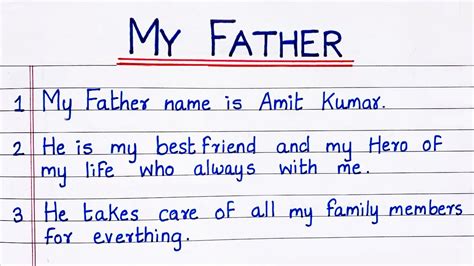 My Father
1 My Father name is Amit Kumar.
2 He is my best friend and my Hero of
my life who always with me.
3 He takes care of all my family members
for everthing.